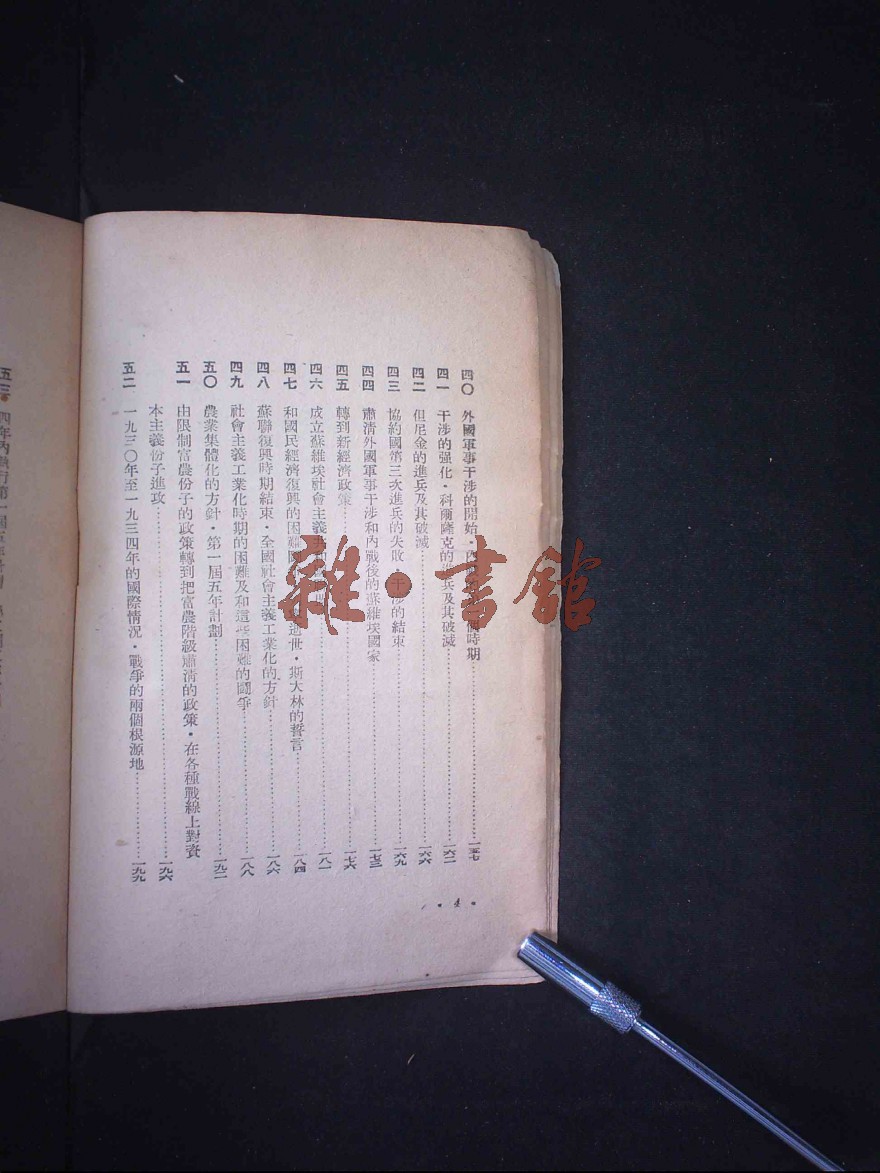 四〇 外國軍事干涉的開始・內 個時期 一五七
四一 干涉的强化・科爾薩克的進兵及其破滅 一六二
四二 但尼金的進兵及其破滅 一六六
四三 協約國第三次進兵的失敗・干涉的結束 一六九
四四 肅清外國軍事干涉和內戰後的蘇維埃國家 一七三
四五 轉到新經濟政策 一七六
四六 成立蘇維埃社會主義共和 一八一
四七 和國民經濟復興的困難鬭 逝世・斯大林的誓言 一八四
四八 蘇聯復興時期結束・全國社會主義工業化的方針 一八六
四九 社會主義工業化時期的困難及和這些困難的鬭爭 一八八
五〇 農業集體化的方針・第一屆五年計劃 一九二
五一 由限制富農份子的政策轉到把富農階級肅清的政策・在各種戰線上對資
本主義份子進攻 一九六
五二 一九三〇年至一九三四年的國際情況・戰爭的兩個根源地 一九九
・4・
五三 四年內執行第一屆五年計劃
雜・書館